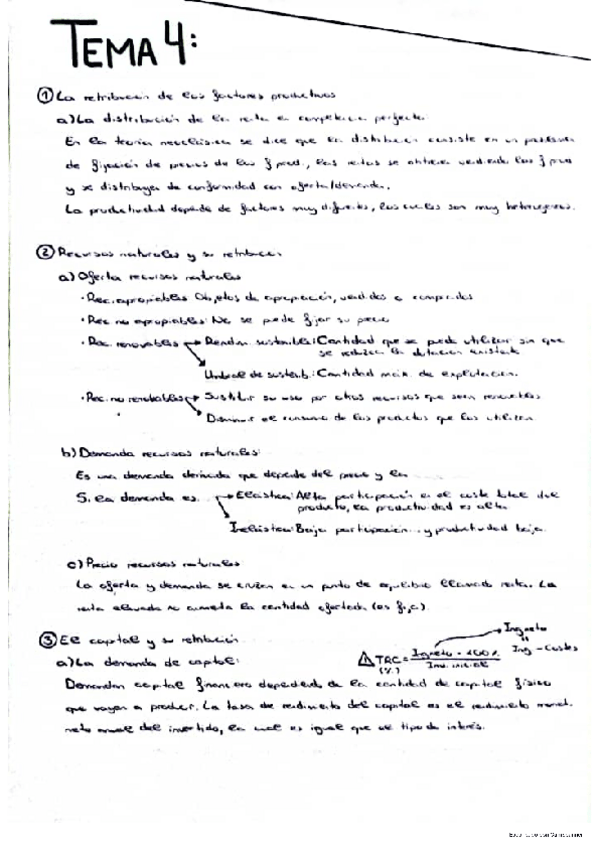 TEMA 4:
① La retribución de los factores productivos
a) La distribución de la renta en competencia perfecta
En la teoría neoclásica se dice que la distribución consiste en un problema
de fijación de precios de los f prod., las rentas se obtienen vendiendo los f prod
y se distribuyen de conformidad con oferta/demanda.
La productividad depende de factores muy diferentes, los cuales son muy heterogéneos.
② Recursos naturales y su retribución
a) Oferta recursos naturales
· Rec. apropiables: Objetos de apropiación, vendidos o comprados
· Rec no apropiables: No se puede fijar su precio
· Rec. renovables → Rendim. sostenible: Cantidad que se puede utilizar sin que
se reduzca la dotación existente
Umbral de sostenib.: Cantidad mín. de explotación.
· Rec. no renovables → Sustituir su uso por otros recursos que sean renovables
Disminuir el consumo de los productos que los utilizan
b) Demanda recursos naturales:
Es una demanda derivada que depende del precio y la
Si la demanda es → Elástica: Alta participación en el coste total del
producto, la productividad es alta
Inelástica: Baja participación... y productividad baja.
c) Precio recursos naturales
La oferta y demanda se cruzan en un punto de equilibrio llamado renta. La
renta elevada no aumenta la cantidad ofertada (es fija).
③ El capital y su retribución
a) La demanda de capital:
TRC = Ingreto · 100 %
(%) Inv. inicial
Ingreto
"
Ing - Costes
Demandan capital financiero dependiendo de la cantidad de capital físico
que vayan a producir. La tasa de rendimiento del capital es el rendimiento monet.
neto anual del invertido, la cual es igual que el tipo de interés.